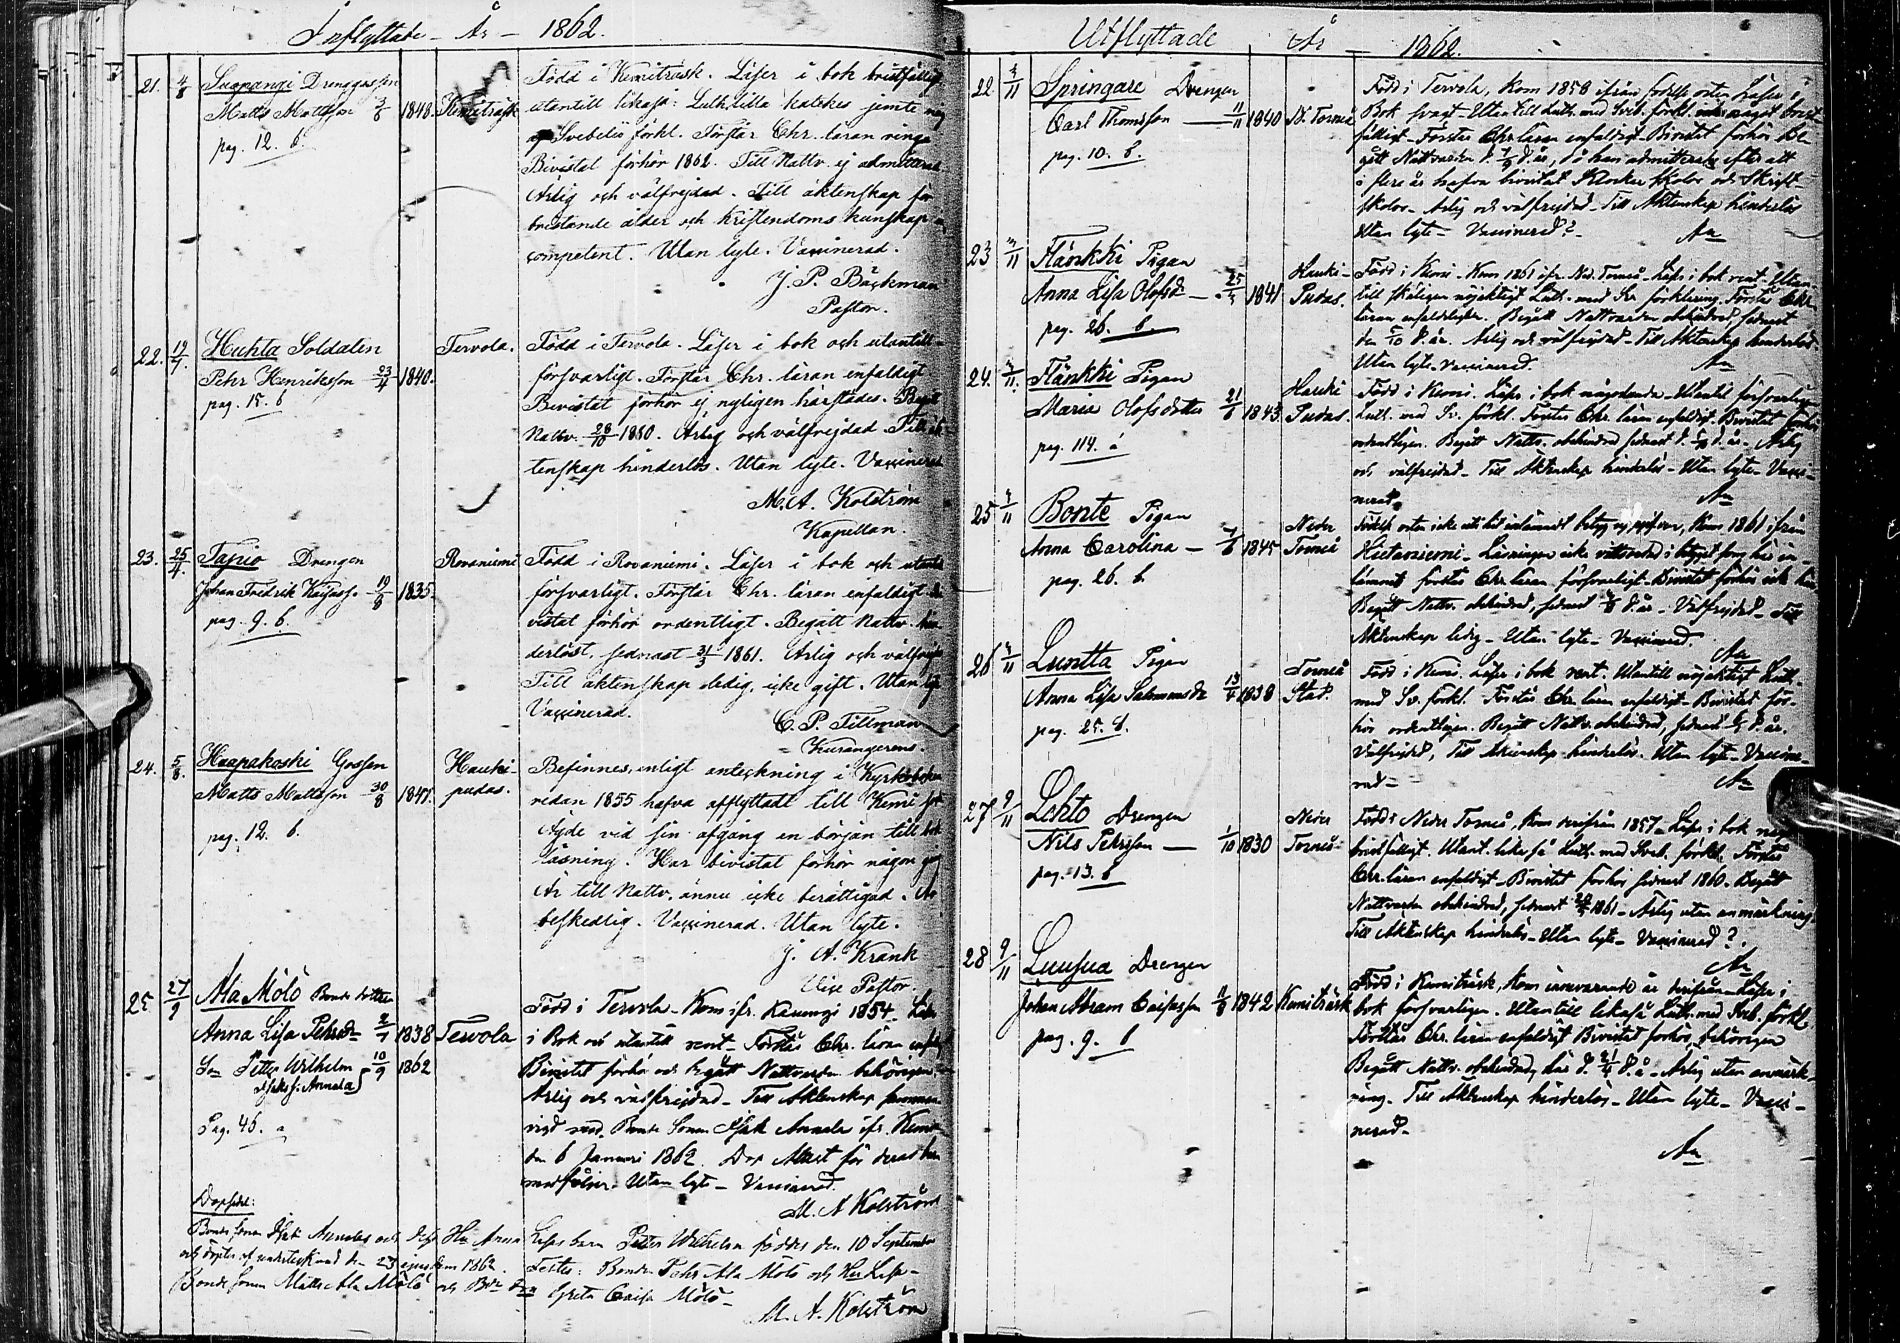 Inflyttade – År – 1862.
21. 4/8 Suopangi Drengsson
Matts Mattsson 3/8 1848. Kemiträsk
pag. 12. b.
Född i Kemiträsk. Läser i bok bristfälligt
utantill likaså: Luth. lilla katekes jemte
Svebelii förkl. Förstår Chr. läran ringa
Bivistat förhör 1862. Till Nattv. ej admitterad.
Ärlig och välfrejdad. Till äktenskap för
bristande ålder och Kristendoms kunskap
competent. Utan lyte. Vaccinerad.
J. P. Bäckman
Pastor.
22. 19/7 Huhta Soldaten Tervola.
Pehr Henriksson 23/4 1840.
pag. 15. b
Född i Tervola. Läser i bok och utantill
försvarligt. Förstår Chr. läran enfaldigt
Bivistat förhör ej nyligen härstädes. Begått
Nattv. 28/10 1860. Ärlig och välfrejdad. Till äk-
tenskap hinderlös. Utan lyte. Vaccinerad
M. A. Kolström
Kapellan.
23. 25/4 Tapio Drengen Rovaniemi
Johan Fredrik 19/8 1835.
pag. 9. b.
Född i Rovaniemi. Läser i bok och utantill
försvarligt. Förstår Chr. läran enfaldigt. Bi-
vistat förhör ordentligt. Begått Nattv. hin-
derlöst, sednast 31/3 1861. Ärlig och välfrejdad
Till äktenskap ledig, icke gift. Utan lyte
Vaccinerad.
C. P. Tillman
24. 5/8. Haapakoski Gossen Hauki-
Matts Mattsson 30/8 1847. pudas.
pag. 12. b.
Befinnes, enligt anteckning i Kyrkoboken
redan 1855 hafva afflyttadt till Kemi
Ägde vid sin afgång en början till bok
läsning. Har bivistat förhör någon gång
Är till Nattv. ännu icke berättigad. Är
beskedlig. Vaccinerad. Utan lyte.
J. A. Krank
Vice Pastor.
25 27/9 Ala Mölö Bonde dottren
Anna Lisa Pehrsdr 2/7 1838 Tervola
Son Petter Wilhelm 10/9 1862
Pag. 45. a
Född i Tervola. Kom ifr. 1854. Läser
i Bok och utantill rent. Förstår Chr. läran enfaldigt
Bivistat förhör och begått Nattvarden behörigen
Ärlig och välfrejdad. Till Äktenskap sammen-
vigd med Bonde Sonen Isak Annala ifr. Kemi
den 6 Januari 1862. Utan lyte. Vaccinerad.
M. A Kolström
Dopsedel:
Bonde Sonen Isak Annalas och dess Hu Anna Lisas barn Petter Wilhelm föddes den 10 September
och döptes af undertecknad den 23 ejusdem 1862. Testes: Bonden Pehr Ala Mölö och Hu Lisa
Bonde Sonen Matts Ala Mölö och Greta Caisa Mölö
M. A. Kolström
Utflyttade År – 1862.
22 3/11 Springare Drengen
Carl Thomsson 11/11 1840 N. Torneå
pag. 10. b.
Född i Tervola, Kom 1858 ifrån födelse orten, Läser i
Bok svagt. Utantill Luth. med Sveb. förkl. något brist-
fälligt. Förstår Chr. läran enfaldigt. Bivistat förhör Be-
gått Nattvarden, då han admitterades efter att
i flere år hafva bivistat Klockar skolor och Skrift-
skolor. Ärlig och välfrejdad. Till Äktenskap hinderlös
Utan lyte. Vaccinerad?
23 3/11 Flänkki Pigan Hauki-
Anna Lisa Olofsdr 25/3 1841 Pudas.
pag. 26. b.
Född i Kemi. Kom 1861 ifr. Ned. Torneå. Läser i bok rent. Utan-
till skäligen nöjaktigt Luth. med Sv. förklaring. Förstår Chr.
läran enfaldigt. Begått Nattvarden obehindrad sednast
Ärlig och välfrejdad. Till Äktenskap hinderlös.
Utan lyte. Vaccinerad.
24. 3/11. Flänkki Pigan Hauki
Maria Olofsdotter 21/6 1843. Pudas.
pag. 114. a
Född i Kemi. Läser i bok någorlunda. Utantill försvarligt
Luth. med Sv. förkl. Förstår Chr. läran enfaldigt. Bivistat förhör
ordentligen. Begått Nattv. obehindrad sednast d. Ärlig
och välfrejdad. Till Äktenskap hinderlös. Utan lyte. Vacci-
nerad.
25 3/11 Bonte Pigan Neder
Anna Carolina 1845 Torneå
pag. 26. b.
Födelse orten icke uti hit inlämnadt betyg uppgifven, Kom 1861 ifrån
Hietaniemi. Läsningen icke vitsordad i betyget
förstår Chr. läran försvarligt. Bivistat förhör
Begått Nattv. obehindrad, sednast Välfrejdad. Till
Äktenskap ledig. Utan lyte. Vaccinerad.
26 3/11 Luntta Pigan Torneå
Anna Lisa Salomonsdr 13/4 1838 Stad.
pag. 25. b.
Född i Kemi. Läser i bok rent. Utantill nöjaktigt Luth.
med Sv. förkl. Förstår Chr. läran enfaldigt. Bivistat för-
hör ordentligen. Begått Nattv. obehindrad, sednast
Välfrejdad, Till Äktenskap hinderlös. Utan lyte. Vaccine-
rad.
27 9/11 Lehto Drengen Neder
Nils Pehrsson 1/10 1830 Torneå
pag. 13. b
Född i Neder Torneå, Kom derifrån 1857. Läser i bok
bristfälligt. Utant. likaså Luth. med Sveb. förkl. Förstår
Chr. läran enfaldigt. Bivistat förhör sednast 1860. Begått
Nattvarden obehindrad, sednast 1861. Ärlig utan anmärkning.
Till Äktenskap hinderlös. Utan lyte. Vaccinerad?
28 9/11 Luusua Drengen
Johan Abram 1842 Kemiträsk
pag. 9. b
Född i Kemiträsk, Kom innevarande år derifrån Läser i
bok försvarligen. Utantill likaså Luth. med Sveb. förkl
Förstår Chr. läran enfaldigt Bivistat förhör behörigen
Begått Nattv. obehindrad, Ärlig utan anmärk-
ning. Till Äktenskap hinderlös. Utan lyte. Vacci-
nerad.